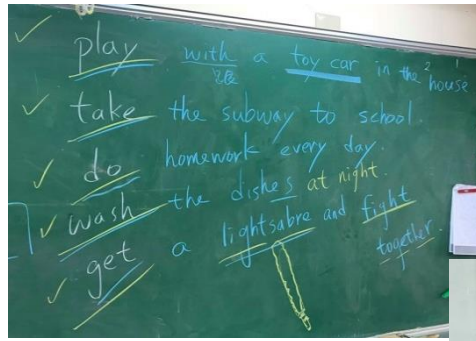 play with a toy car in the house
跟
2 1
take the subway to school.
do homework every day.
wash the dishes at night.
get a lightsabre and fight
together.